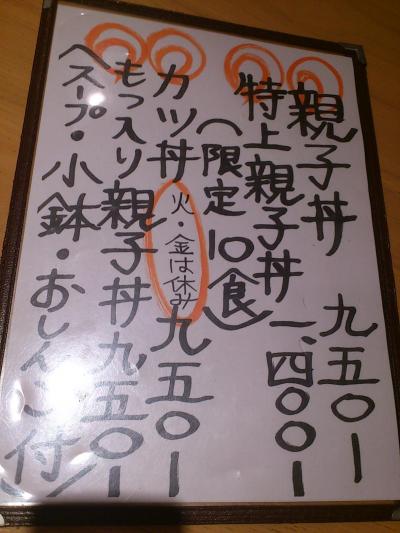 親子丼 九五〇ー
特上親子丼 一、四〇〇ー
(限定10食)
カツ丼 火・金は休み 九五〇ー
もつ入り親子丼 九五〇ー
スープ・小鉢・おしんこ付